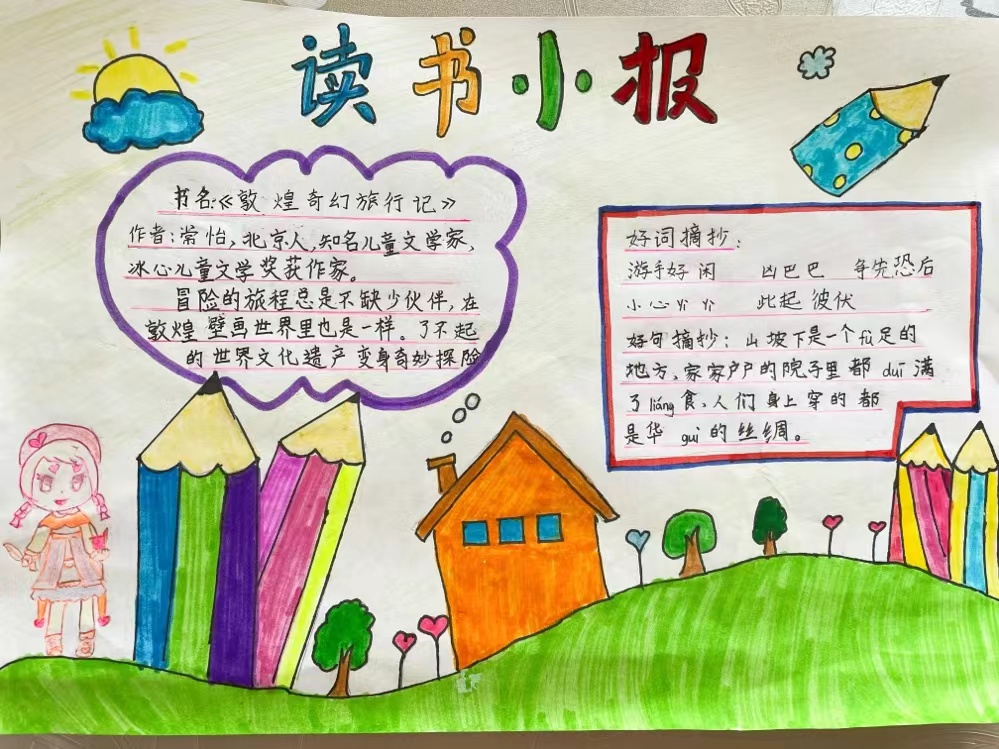 读书小报
书名:《敦煌奇幻旅行记》
作者:常怡,北京人,知名儿童文学家,
冰心儿童文学奖获作家。
冒险的旅程总是不缺少伙伴,在
敦煌壁画世界里也是一样。了不起
的世界文化遗产变身奇妙探险
好词摘抄:
游手好闲 凶巴巴 争先恐后
小心丷丷 此起彼伏
好句摘抄:山坡下是一个fù足的
地方、家家户户的院子里都duī满
了liáng食、人们身上穿的都
是华guì的丝绸。